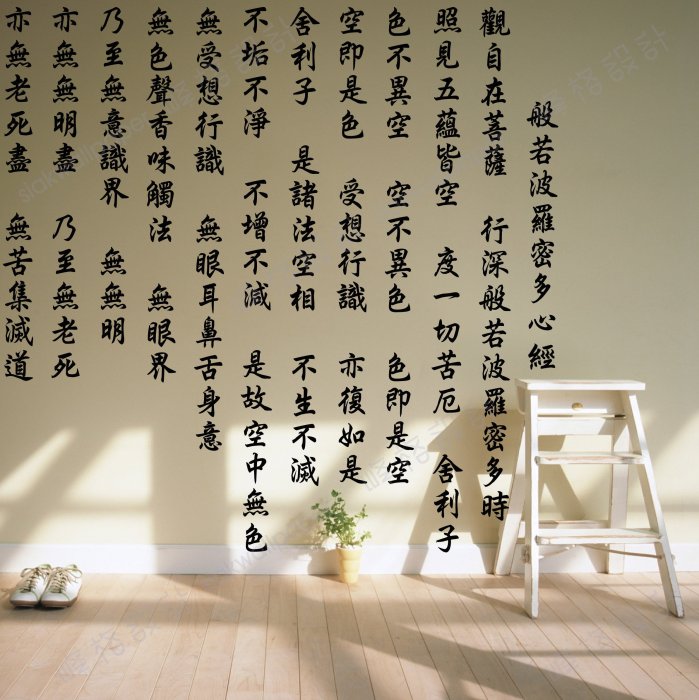 般若波羅密多心經
觀自在菩薩 行深般若波羅密多時
照見五蘊皆空 度一切苦厄 舍利子
色不異空 空不異色 色即是空
空即是色 受想行識 亦復如是
舍利子 是諸法空相 不生不滅
不垢不淨 不增不減 是故空中無色
無受想行識 無眼耳鼻舌身意
無色聲香味觸法 無眼界
乃至無意識界 無無明
亦無無明盡 乃至無老死
亦無老死盡 無苦集滅道